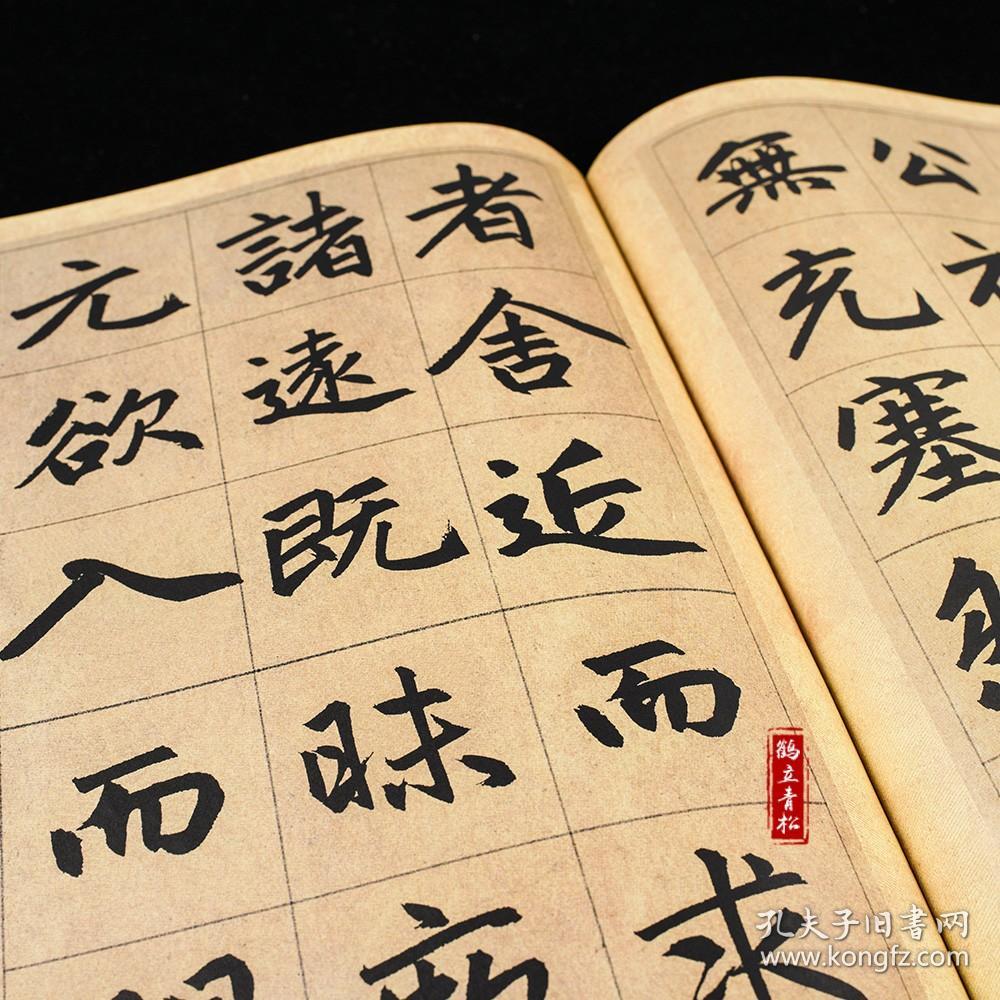 公
無充塞
者舍近而求
諸遠既昧
元欲入而
鹤立青松
孔夫子旧書网
www.kongfz.com